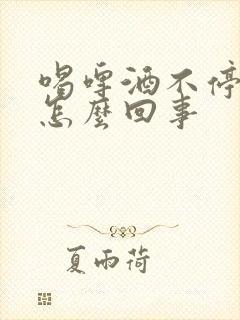 喝啤酒不停
怎麼回事
夏雨荷